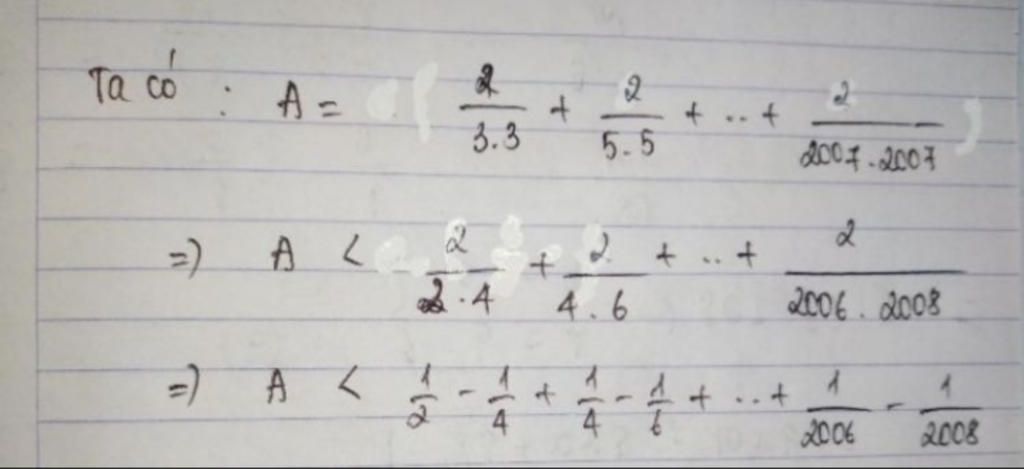 Ta có : A = 2/3.3 + 2/5.5 + ..+ 2/2007.2007
=) A < 2/2.4 + 2/4.6 + ..+ 2/2006.2008
=) A < 1/2 - 1/4 + 1/4 - 1/6 + ..+ 1/2006 - 1/2008